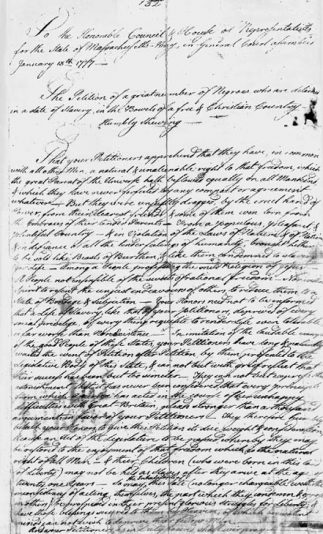 152
To the Honorable Council & House of Representatives
for the State of Massachusetts-Bay, in General Court assembled
January 13th 1777—
The Petition of a great number of Negroes who are detained
in a state of Slavery, in the Bowels of a free & Christian Country—
Humbly Shewing—
That your Petitioners apprehend that they have, in common
with all other Men, a natural & unalienable right to that freedom, which
the great Parent of the Universe hath bestowed equally on all Mankind
& which they have never forfeited by any compact or agreement
whatever— But they were unjustly dragged, by the cruel hand of
Power, from their dearest friends, & some of them even torn from the
embraces of their tender Parents— from a populous, pleasant &
plentiful Country— & in Violation of the Laws of Nature & of Nations
& in defiance of all the tender feelings of humanity, brought hither
to be sold like Beasts of Burthen, & like them condemned to slavery
for Life— Among a People professing the mild Religion of Jesus—
A People not insensible of the sweets of rational freedom— Nor without
spirit to resent the unjust endeavours of others to reduce them to a
State of Bondage & Subjection—
Your Honors need not to be informed
that a Life of Slavery, like that of your Petitioners, deprived of every
social privilege, of every thing requisite to render Life even tolerable,
is far worse than Non-Existence—
In imitation of the laudable example
of the good People of these States, your Petitioners have long & patiently
waited the event of Petition after Petition by them presented to the
Legislative Body of this State, & can not but with grief reflect that
their success has been but too similar—
They can not but express their
astonishment, that it has never been considered, that every principle
from which America has acted in the course of her unhappy
difficulties with Great-Britain, pleads stronger than a thousand
arguments in favor of your Petitioners.
They therefore humbly
beseech your Honors, to give this Petition its due weight & consideration, &
cause an Act of the Legislature to be passed, whereby they may
be restored to the enjoyment of that freedom which is the natural
right of all Men— & their Children (who were born in this Land
of Liberty) may not be held as Slaves after they arrive at the age of
twenty one Years—
So may the Inhabitants of this State (no longer chargeable with the
inconsistency of acting, themselves, the part which they condemn & oppose in
others) be prospered in their present glorious struggles for Liberty; &
have those blessings secured to them by Heaven, of which benevolent
minds can not wish to deprive their fellow Men.